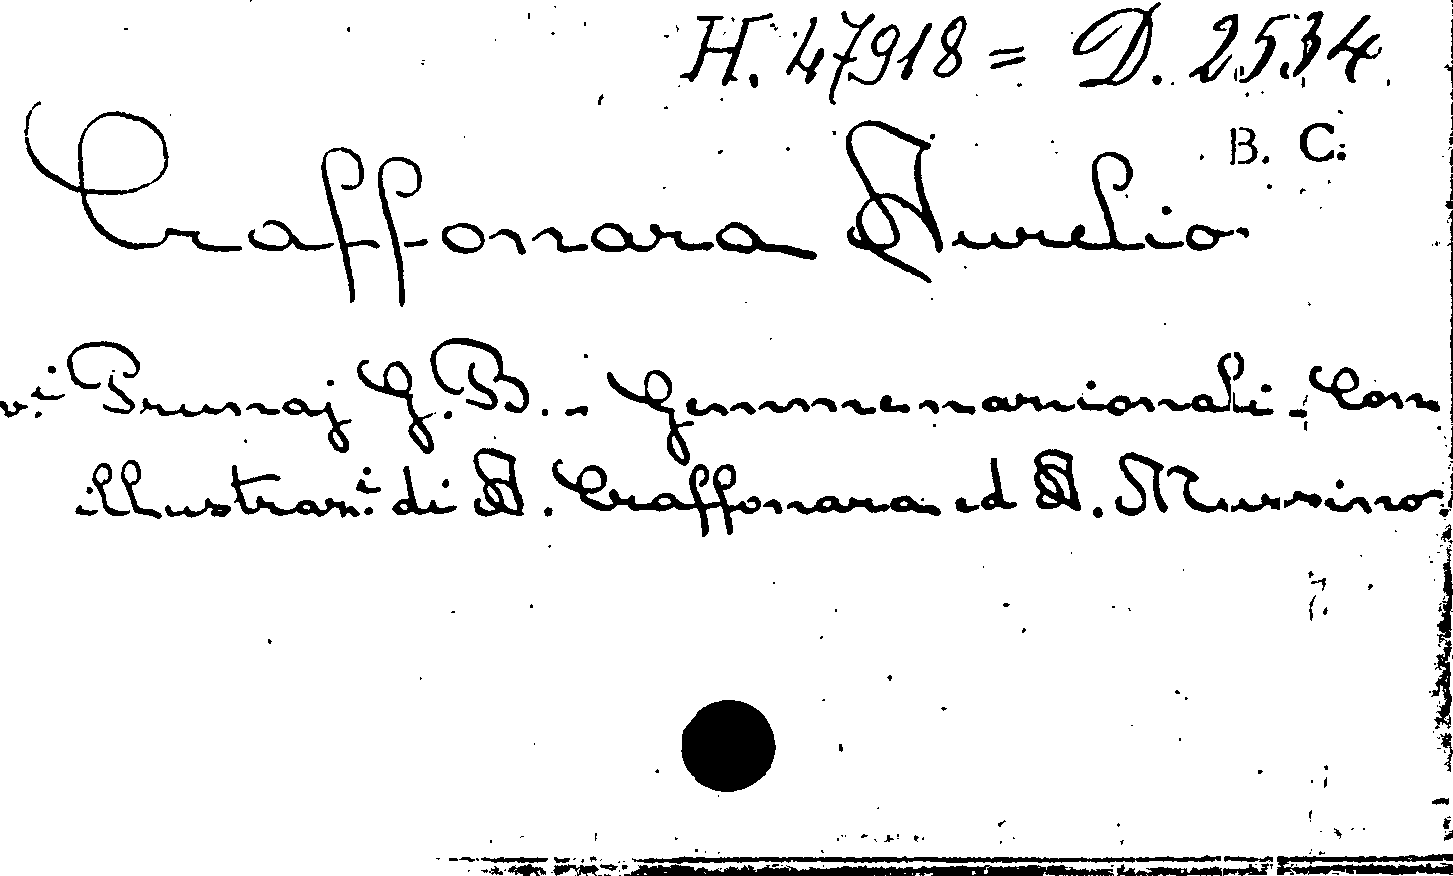 H. 47918 = D. 2534
B. C.
Craffonara Aurelio
v.i Prunaj G. B. - Gemme nazionali - Con
illustraz.i di A. Craffonara ed A. Mussino.